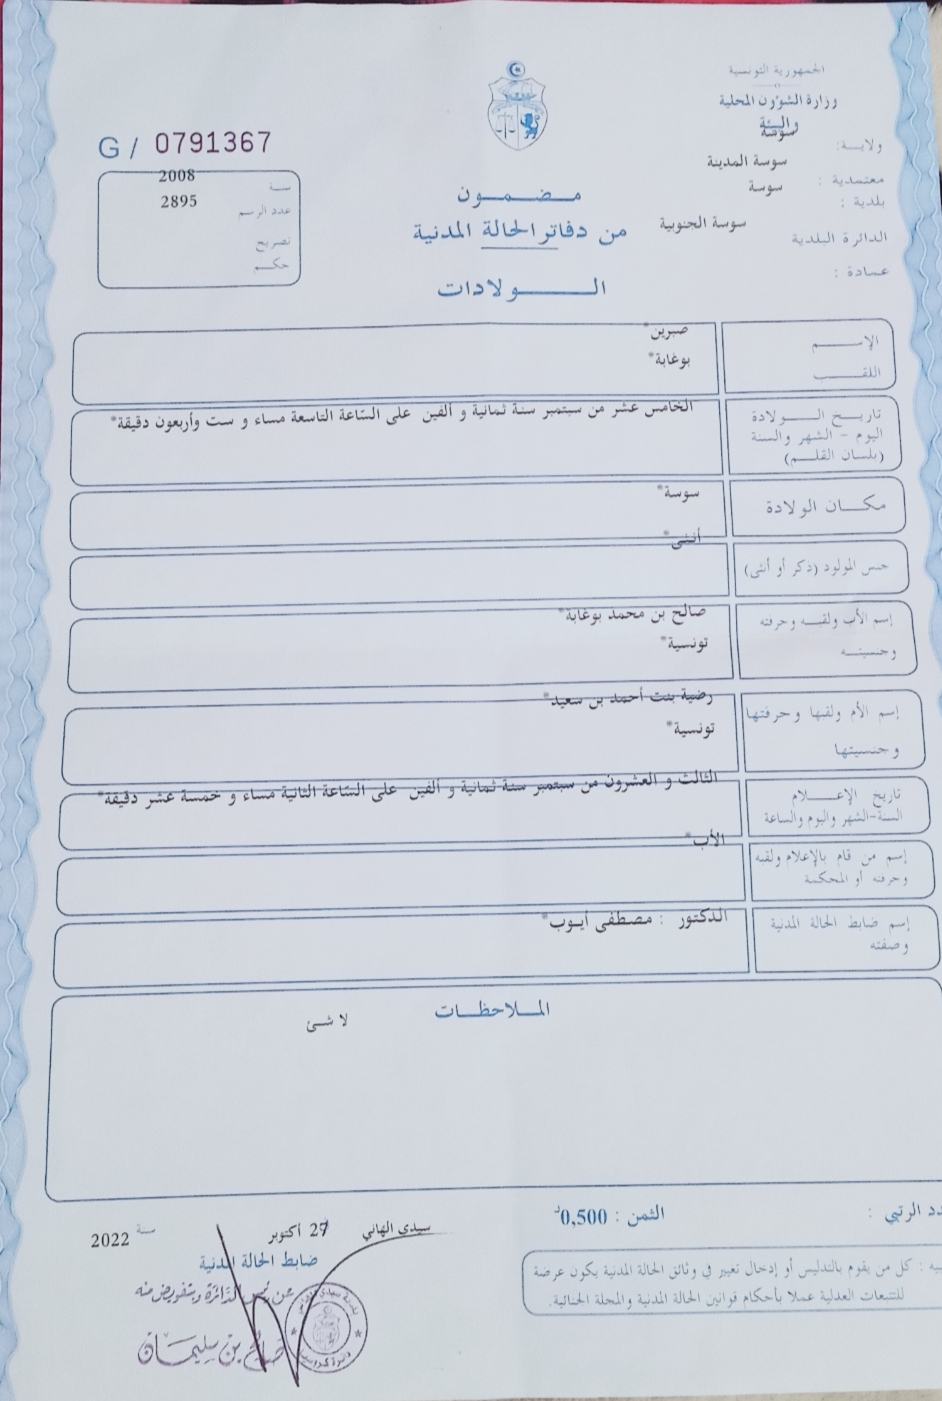 الجمهورية التونسية
وزارة الشؤون المحلية
والبيئة
ولايــة: سوسة
معتمدية : سوسة المدينة
بلدية : سوسة
الدائرة البلدية سوسة الجنوبية
عمادة :
G / 0791367
سنة 2008
عدد الرسم 2895
تصريح
حكــم
مـضـمــون
من دفاتر الحالة المدنية
الـــولادات
الإســـم صبرين*
اللقــب بوغابة*
تاريــخ الـــولادة
اليوم - الشهر والسنة
(بلسان القلــم)
الخامس عشر من سبتمبر سنة ثمانية و ألفين على السّاعة التاسعة مساء و ست وأربعون دقيقة*
مكـــان الولادة سوسة*
جنس المولود (ذكر أو أنثى) أنثى*
إسم الأب ولقبــه وحرفته صالح بن محمد بوغابة*
وجنسيتــه تونسية*
إسم الأم ولقبها وحرفتها رضية بنت أحمد بن سعيد*
وجنسيتها تونسية*
تاريخ الإعــــلام
السنة-الشهر واليوم والساعة
الثالث و العشرون من سبتمبر سنة ثمانية و ألفين على السّاعة الثانية مساء و خمسة عشر دقيقة*
إسم من قام بالإعلام ولقبه
وحرفته أو المحكمة
الأب*
إسم ضابط الحالة المدنية
وصفته
الدكتور : مصطفى أيــوب*
المــلاحظــات
لا شــئ
الثمن : 0,500د
الرتبي :
كل من يقوم بالتدليس أو إدخال تغيير في وثائق الحالة المدنية يكون عرضة
للتبعات العدلية عملا بأحكام قوانين الحالة المدنية والمجلة الجنائية.
سيدي الهاني 27 أكتوبر سنة 2022
ضابط الحالة المدنية
عن رئيس الدائرة وبتفويض منه
صالح بن سليمان